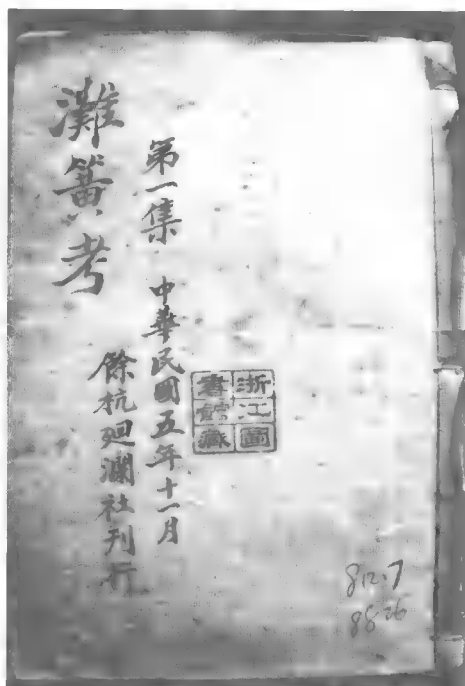 灘簧考
第一集 中華民國五年十一月
餘杭廻瀾社刊行
浙江圖
書館藏
812.7
8826